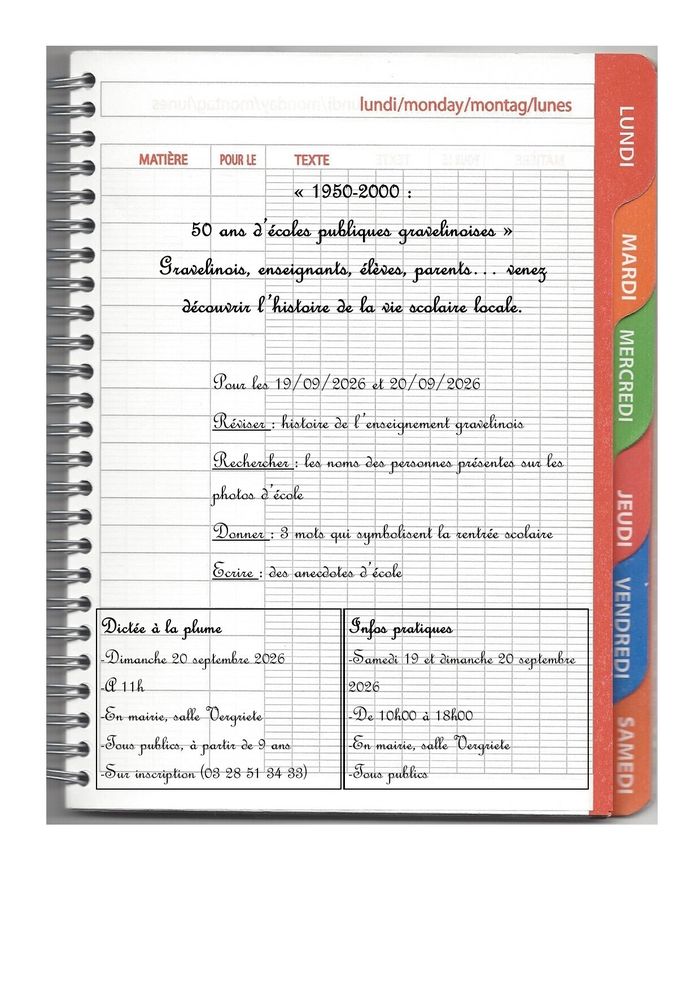 lundi/monday/montag/lunes
MATIÈRE POUR LE TEXTE
« 1950-2000 :
50 ans d'écoles publiques gravelinoises »
Gravelinois, enseignants, élèves, parents… venez
découvrir l'histoire de la vie scolaire locale.
Pour les 19/09/2026 et 20/09/2026
Réviser : histoire de l'enseignement gravelinois
Rechercher : les noms des personnes présentes sur les
photos d'école
Donner : 3 mots qui symbolisent la rentrée scolaire
Ecrire : des anecdotes d'école
Dictée à la plume
-Dimanche 20 septembre 2026
-A 11h
-En mairie, salle Vergriete
-Tous publics, à partir de 9 ans
-Sur inscription (03 28 51 34 33)
Infos pratiques
-Samedi 19 et dimanche 20 septembre
2026
-De 10h00 à 18h00
-En mairie, salle Vergriete
-Tous publics
LUNDI
MARDI
MERCREDI
JEUDI
VENDREDI
SAMEDI